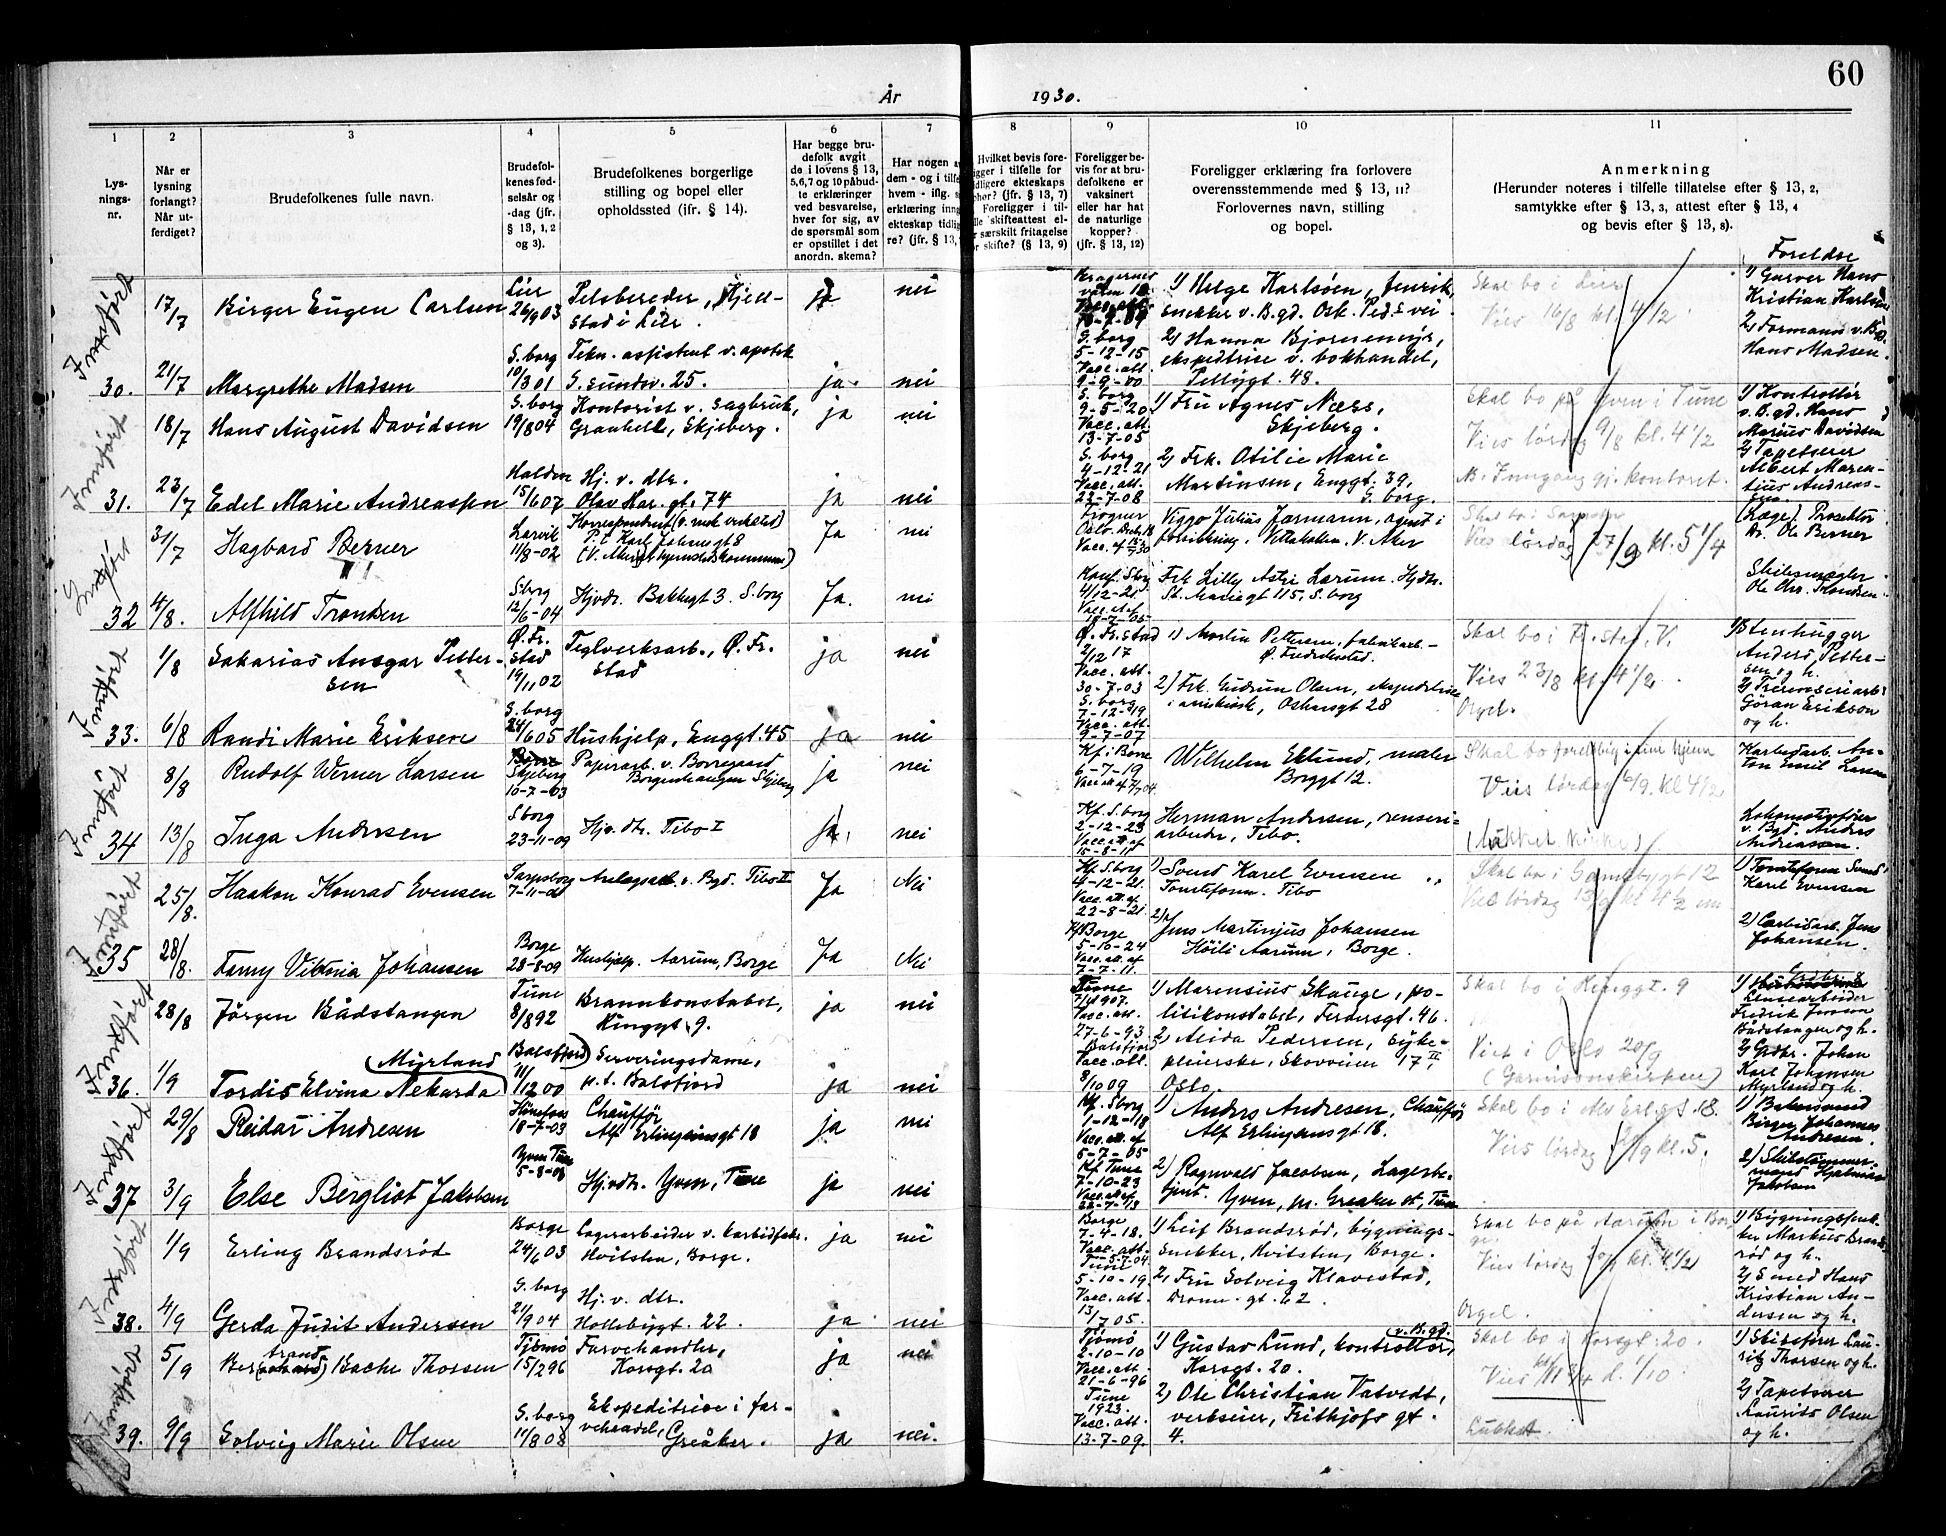 60
År 1930.
1 2 3 4 5 6 7 8 9 10 11
Lys-
nings-
nr.
Når er
lysning
forlangt?
Når ut-
ferdiget?
Brudefolkenes fulle navn.
Brudefol-
kenes fød-
selsår og
-dag (jfr.
§ 13, 1, 2
og 3).
Brudefolkenes borgerlige
stilling og bopel eller
opholdssted (ifr. § 14).
Har begge bru-
defolk avgit
de i lovens § 13,
5,6,7 og 10 påbud-
te erklæringer
ved besvarelse,
hver for sig, av
de spørsmål som
er opstillet i det
anordn. skema?
Har nogen a
dem - og i tilfe
hvem - iflg. s
erklæring inng
ekteskap tidlig
re? (jfr. § 13,
Hvilket bevis fore-
ligger i tilfelle for
tidligere ekteskaps
ophør? (jfr. § 13, 7)
Foreligger i til-
felle skifteattest el-
ler særskilt fritagelse
for skifte? (§ 13, 9)
Foreligger be-
vis for at bru-
defolkene er
vaksinert
eller har hat
de naturlige
kopper?
(jfr. § 13, 12)
Foreligger erklæring fra forlovere
overensstemmende med § 13, 11?
Forlovernes navn, stilling
og bopel.
Anmerkning
(Herunder noteres i tilfelle tillatelse efter § 13, 2,
samtykke efter § 13, 3, attest efter § 13, 4
og bevis efter § 13, 8).
Foreldre
Innført
17/7 Birger Eugen Carlsen Lier 26/9 03 Pelsbereder, Kjell-
stad i Lier. ja nei
1) Helge Karlsøen, Henrik,
snekker v. B.gd. Osk. Ped.s vei
Skal bo i Lier
Vies 16/8 kl. 4 1/2
1) Garver Hans
Kristian Karlsen
30. 21/7 Margrethe Madsen S. borg 10/3 01 Tekn. assistent v. apotek
G. sundsv. 25. ja. nei
S. borg
5-12-15
Vacc. att.
9-9-00
2) Hanna Bjørnemyr,
ekspeditrise v. bokhandel,
Pellygt. 48.
2) Formann v. B.gd.
Hans Madsen.
Innført
18/7 Hans August Davidsen S. borg 19/8 04 Kontorist v. sagbruk,
Granhell, Skjeberg. ja nei
S. borg
9-5-20
Vacc. att.
13-7-05
1) Fru Agnes Næss,
Skjeberg.
Skal bo på Yven i Tune
Vies lørdag 9/8 kl. 4 1/2
1) Kontrollør
v. B.gd. Hans
Marius Davidsen
31. 23/7 Edel Marie Andreassen Halden 15/6 07 Hj. v. dtr.
Olav Har. gt. 74 ja nei
S. borg
4-12-21
Vacc. att.
22-7-08
2) Frk. Otilie Marie
Martinsen, Enggt. 39,
S. borg.
B. Inngang gj. kontoret.
2) Tapetserer
Albert Maren-
tius Andreas-
sen
Innført
31/7 Hagbard Berner Larvik 11/9-02 Ja nei
Viggo Julius Jarmann, agent i
forsikring. Vettakollen, V. Aker
Vies lørdag 27/9 kl. 5 1/4
(Læge) Prosektor
Dr. Ole Berner
32 4/8. Alfhild Trondsen Sborg 12/6-04 Hjvdr. Bakkegt 3. S. borg Ja. nei
Konf. Sbg
4/12-21.
Vacc. att.
18-7-05
Frk Lilly Astri Larum. Hjdtr.
St. Mariegt 115, S. borg
Skibsmegler
Ole Chr. Trondsen.
Innført
1/8 Sakarias Ansgar Petter-
sen Ø. Fr.
stad
19/11 02 Teglverksarb., Ø. Fr.
stad ja nei
Ø. Fr.stad
2/12 17
Vacc. att.
30-7-03
1) Martin Pettersen, fabrikkarb. -
Ø. Fredrikstad.
Skal bo i Fr. stad. V.
Vies 23/8 kl. 4 1/2
1) Stenhugger
Anders Petter-
sen og h.
33. 6/8 Randi Marie Eriksen S. borg 24/6 05 Hushjelp, Enggt. 45 ja nei
S. borg
7-12-19
Vacc. att.
9-7-07
2) Frk. Gudrun Olsen, ekspeditrise
i aviskiosk, Oskarsgt 28
Orgel.
Göran Erikson
og h.
Innført
8/8 Rudolf Werner Larsen Skjeberg
10-7-03 Papirarb. v. Borregaard
Borgenhaugen Skjeberg ja nei
Kf. i Borre
6-7-19
Wilhelm Eklund, maler
Borggt 12.
Skal bo foreløbig i sine hjem
Vies lørdag 6/9. kl 4 1/2
Karbidarb. An-
ton Emil Larsen
34 13/8 Inga Andersen Sborg
23-11-09 Hjv. dtr. Tibo I Ja. nei
Kf. S. borg
2-12-23
Vacc. att af
15-8-11
Herman Andersen, renseri-
arbeider, Tibo.
(Lukket kirke)
Lokomotivfører
v. Bgd. Anders
Andreassen.
Innført
25/8. Haakon Konrad Evensen Sarpsborg
7-11- Anlegsarb. v. Bgd. Tibo II Ja Nei
Kf. S. borg
4-12-21.
Vacc. att. af
22-8-21.
1) Svend Karel Evensen
Tomteform. Tibo
Skal bo i Gamlebygt 12
Vies lørdag 13/9 kl 4 1/2 em
1) Tomteform. Svend
Karel Evensen
35 28/8. Fanny Viktoria Johansen Borge
28-8-09 Hushjelp. Aarum, Borge Ja Nei
Kf Borge
5-10-24
Vacc. att. af
7-7-11.
2) Jens Martinjus Johansen
Høili Aarum, Borge.
2) Carbidarb. Jens
Johansen.
Innført
28/8 Jörgen Bådstangen Tune
8/8 92 Brannkonstabel,
Ringgt. 9. ja nei
Tune
1907.
Vacc. att.
27-6-93
1) Marensius Skauge, po-
litikonstabel, Ferdersgt. 46.
Skal bo i Ringgt. 9
1) Lensearbeider
Fredrik Jenson
Bådstangen og h.
36. 1/9 Tordis Elvina Nekarda (Myrland) Balsfjord
11/12 00 Serveringsdame,
p.t. Balsfjord ja nei
Balsfjord
Vacc. att.
8/10 09
2) Alida Pedersen, syke-
pleierske, Skovveien 17 II
Oslo.
Viet i Oslo 20/9
(Garnisonskirken)
2) Grdbr. Johan
Karl Johansen
Myrland og h.
Innført
29/8 Reidar Andresen Hønefoss
18-7-03 Chauffør
Alf Erlingsønsgt 18 ja nei
Kf. Sborg
1-12-18
Vacc. att. af
5-7-05
1) Anders Andresen, Chauffør
Alf Erlingsønsgt 18.
Skal bo i Alf Erl.gt 18.
Vies lørdag /9 kl. 5.
1) Bakersvend
Birger Johannes
Andresen.
37 3/9 Else Bergliot Jakobsen Yven Tune
5-8-08 Hjvdtr. Yven, Tune ja nei
Kf Tune
7-10-23
Vacc. att af
22-7-13
2) Ragnvald Jacobsen, Lagerbe-
tjent. Yven, pr. Greaker st, Tune
2) Skibstømmer-
mand Hjalmar
Jakobsen
Innført
1/9 Erling Brandsrød Borge
24/6 03 Lagerarbeider v. karbidfabr.
Hvitsten, Borge. ja nei
Borge
7-4-18.
Vacc. att.
5-7-04
1) Leif Brandsrød, bygnings-
snekker, Hvitsten, Borge.
Skal bo på Aarum i Bor-
ge.
Vies lørdag 20/9 kl. 4 1/2
1) Bygningssnek-
ker Markus Brands-
rød og h.
38. 4/9 Gerda Judit Andersen S. borg
21/9 04 Hj. v. dtr.
Hollebygt. 22. ja. nei
Tune
5-10-19.
Vacc. att.
13/7 05.
2) Fru Solveig Klavestad,
Dronn. gt. 62.
Orgel.
2) Smed Hans
Kristian An-
dersen og h.
Innført
5/9 Bertrand Bache Thorsen Tjömö
15/2 96 Farvehandler,
Korsgt. 20 ja nei
Tjömö
2-10-10
Vacc. att.
21-6-96
1) Gustav Lund, kontrollör, v. B.gd.
Korsgt. 20.
Skal bo i Korsgt. 20.
Vies kl. 11 3/4 d. 1/10.
1) Skibsfører Lau-
ritz Thorsen og h.
39. 9/9 Solveig Marie Olsen S. borg
11/8 08 Ekspeditrise i far-
vehandel, Greåker. ja nei.
Tune
1923.
Vacc. att.
13-7-09.
2) Ole Christian Vatvedt,
verkseier, Frithjofs gt.
4.
Lukket
2) Tapetserer
Laurits Olsen
og h.